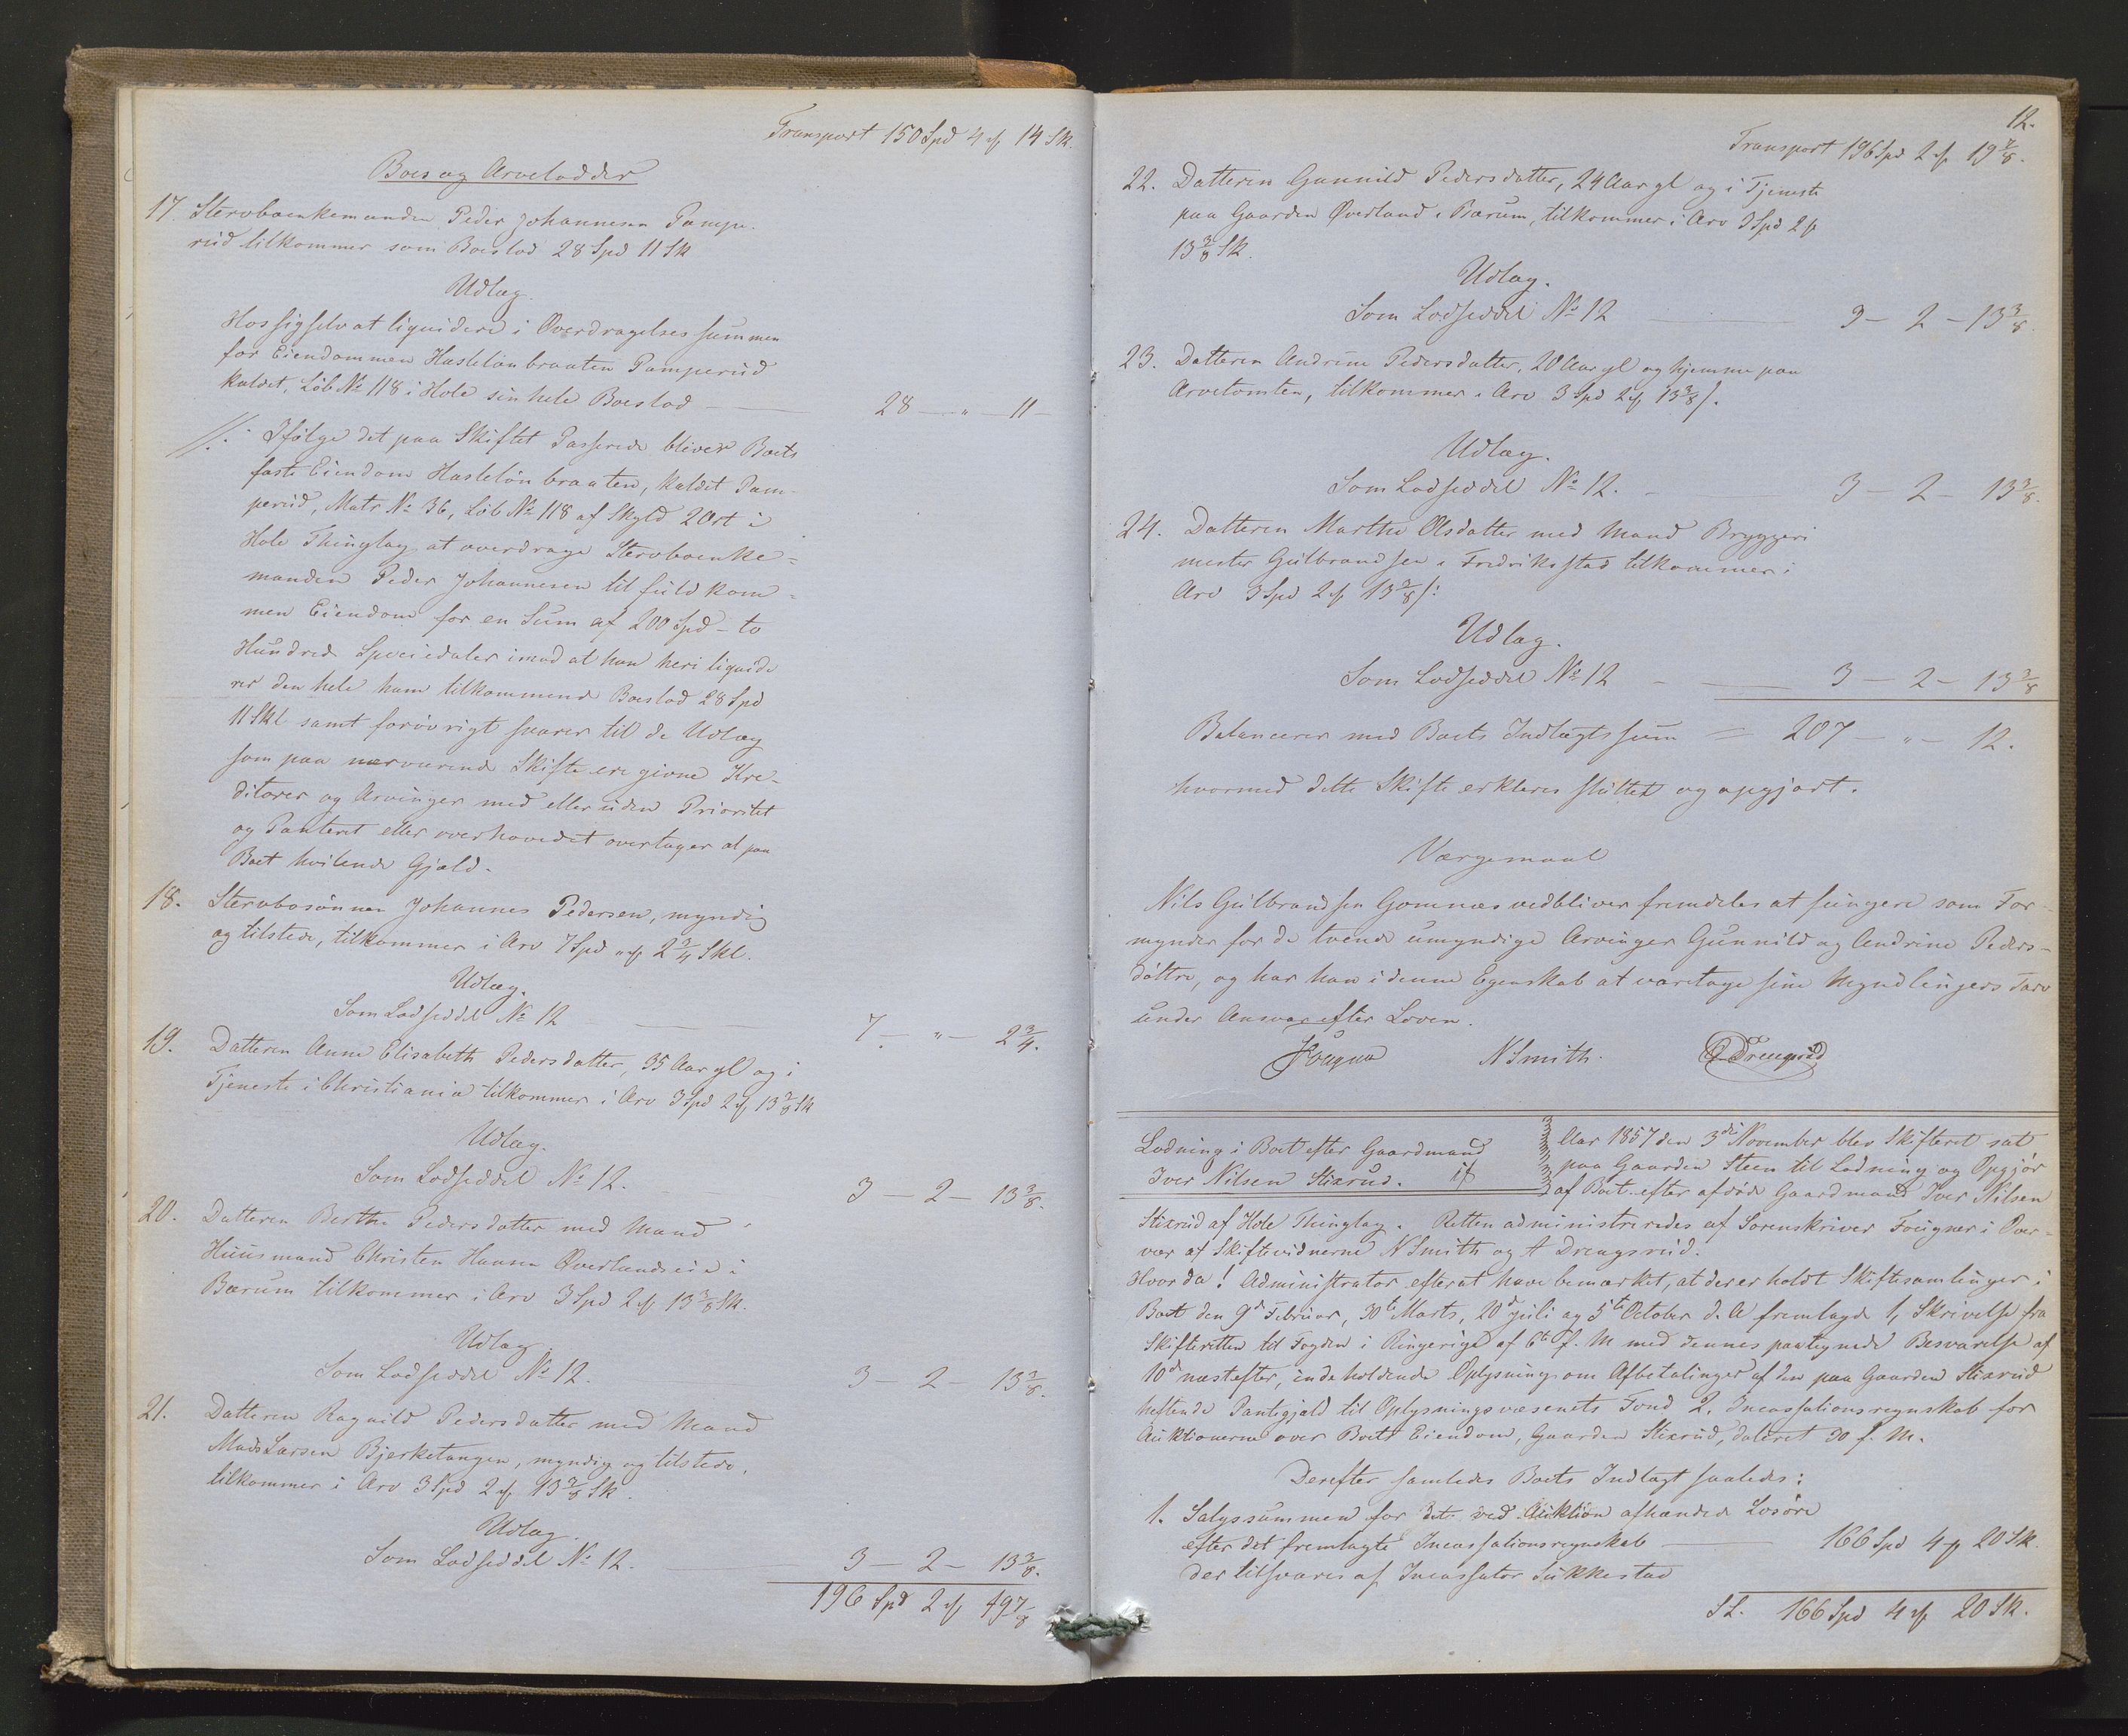 Transport 150 Spd 4 ƒ 14 Sk.
Boes og Arvelodder
17. Stervboenkemanden Peder Johannesen Pampe-
rud tilkommer som Boeslod 28 Spd 11 Sk
Udlæg.
Hos sig selv at liquidere i Overdragelsessummen
for Eiendommen Haslelønbraaten Pamperud
kaldet, Løb № 118 i Hole sin hele Boeslod — 28 — " — 11 —
//: Ifølge det paa Skiftet Passerede bliver Boets
faste Eiendom Hasleløn braaten, kaldet Pam-
perud, Matr № 36, Løb № 118 af Skyld 2 Ort i
Hole Thinglag at overdrage Stervboenke-
manden Peder Johannesen til fuldkom-
men Eiendom for en Sum af 200 Spd - to
Hundred Speciedaler imod at han heri liquide
rer den hele ham tilkommende Boeslod 28 Spd
11 Skl samt forøvrigt svarer til de Udlæg
som paa nærværende Skifte ere givne Kre-
ditorer og Arvinger med eller uden Prioritet
og Panteret eller overhovedet overtager al paa
Boet hvilende Gjæld.
18. Stervbosønnen Johannes Pedersen, myndig
og tilstede, tilkommer i Arv 7 Spd " ƒ 2 3/4 Skl.
Udlæg.
Som Lodseddel № 12 — 7 — " — 2 3/4.
19. Datteren Anne Elisabeth Pedersdatter, 35 Aar gl og i
Tjeneste i Christiania tilkommer i Arv 3 Spd 2 ƒ 13 3/8 Sk
Udlæg.
Som Lodseddel № 12. 3 — 2 — 13 3/8.
20. Datteren Berthe Pedersdatter med Mand
Huusmand Christen Hansen Øverlandseie i
Bærum tilkommer i Arv 3 Spd 2 ƒ 13 3/8 Sk.
Udlæg
Som Lodseddel № 12. 3 — 2 — 13 3/8.
21. Datteren Ragnild Pedersdatter med Mand
Mads Larsen Bjerketangen, myndig og tilstede,
tilkommer i Arv 3 Spd 2 ƒ 13 3/8 Sk.
Udlæg.
Som Lodseddel № 12. — 3 — 2 — 13 3/8.
196 Spd 2 ƒ 19 7/8
12.
Transport 196 Spd 2 ƒ 19 7/8.
22. Datteren Gunnild Pedersdatter, 24 Aar gl og i Tjeneste
paa Gaarden Øverland i Bærum, tilkommer i Arv 3 Spd 2 ƒ
13 3/8 Sk.
Udlæg.
Som Lodseddel № 12 — 3 — 2 — 13 3/8.
23. Datteren Andrine Pedersdatter, 20 Aar gl og hjemme paa
Arvetomten, tilkommer i Arv 3 Spd 2 ƒ 13 3/8 ß.
Udlæg.
Som Lodseddel № 12. — 3 — 2 — 13 3/8.
24. Datteren Marthe Olsdatter med Mand Bryggeri
mester Gulbrandsen i Fredrikstad tilkommer i
Arv 3 Spd 2 ƒ 13 3/8 ß:
Udlæg.
Som Lodseddel № 12 — 3 — 2 — 13 3/8
Balancerer med Boets Indtægtssum = 207 — " — 12.
hvormed dette Skifte erklæres sluttet og opgjort.
Værgemaal
Nils Gulbrandsen Gomnæs vedbliver fremdeles at fungere som For-
mynder for de tvende umyndige Arvinger Gunnild og Andrine Peders-
døttre, og har han i denne Egenskab at varetage sine Myndlingers Tarv
under Ansvar efter Loven.
Fougner N Smith. A Drengsrud
Lodning i Boet efter Gaardmand
Iver Nilsen Stixrud.
Aar 1857 den 3die November blev Skifteret sat
paa Gaarden Steen til Lodning og Opgjør
af Boet efter afdøde Gaardmand Iver Nilsen
Stixrud af Hole Thinglag. Retten administreredes af Sorenskriver Fougner i Over-
vær af Skiftevidnerne N Smith og A Drengsrud.
Hvor da! Administrator efterat have bemærket, at der er holdt Skiftesamlinger i
Boet den 9de Februar, 30te Marts, 20de Juli og 5te October d. A fremlagde 1, Skrivelse fra
Skifteretten til Fogden i Ringerige af 6te f. M med dennes paategnede Besvarelse af
10de næstefter, indeholdende Oplysning om Afbetalinger af den paa Gaarden Stixrud
heftende Pantegjæld til Oplysningsvæsenets Fond 2. Incassationsregnskab for
Auktionerne over Boets Eiendom, Gaarden Stixrud, dateret 30 f. M.
Derefter samledes Boets Indtægt saaledes:
1. Salgssummen for det ved Auktion afhændede Løsøre
efter det fremlagte Incassationsregnskab — 166 Spd 4 ƒ 20 Sk.
der tilsvares af Incassator Sukkestad
Sl. 166 Spd 4 ƒ 20 Sk.